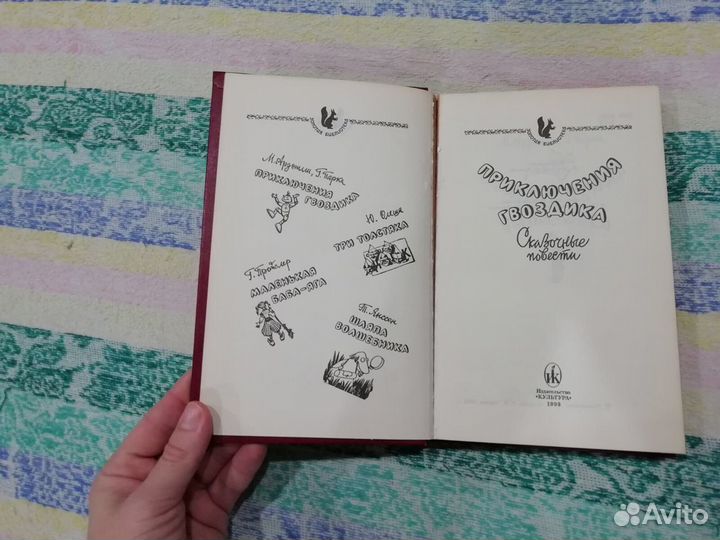 ЗОЛОТАЯ БИБЛИОТЕКА
М. Арджилли, Г. Парка
ПРИКЛЮЧЕНИЯ
ГВОЗДИКА
Ю. Олеша
ТРИ ТОЛСТЯКА
Г. Пройслер
МАЛЕНЬКАЯ
БАБА-ЯГА
Т. Янссон
ШЛЯПА
ВОЛШЕБНИКА
БИБЛИОТЕКА
ПРИКЛЮЧЕНИЯ
ГВОЗДИКА
Сказочные
повести
Издательство
«КУЛЬТУРА»
1993
Avito